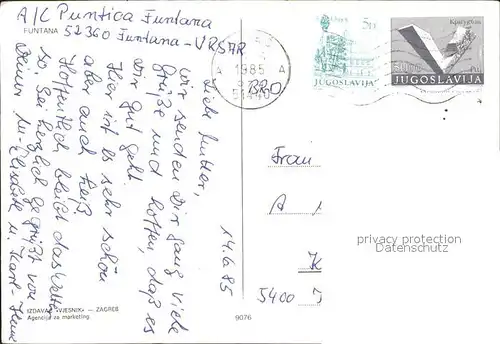 A/C Puntica Funtana
52360 Funtana - VRSAR
FUNTANA
1985
A A
51440
BRO
5.-
JUGOSLAVIJA
Kragujevac
JUGOSLAVIJA
14.6.85
Liebe Mutter,
wir senden Dir ganz viele
Grüße und hoffen, daß es
Dir gut geht.
Hier ist es sehr schön
aber auch heiß.
Hoffentlich bleibt das Wetter
so. Sei herzlich gegrüßt von
Deiner M.-Elisabeth u. Karl-Heinz
Frau
A
K
5400
privacy protection
Datenschutz
IZDAVAČ »VJESNIK« — ZAGREB
Agencija za marketing
9076